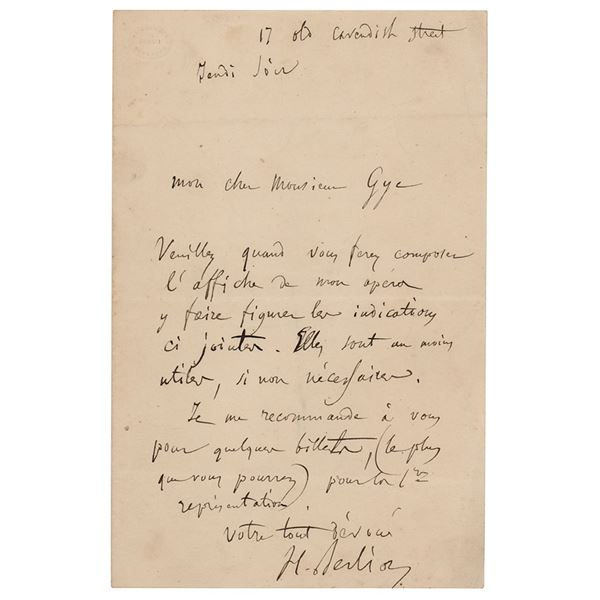 17 old Cavendish street
Jeudi Soir
mon cher Monsieur Gye
Veuillez quand vous ferez composer
l'affiche de mon opéra
y faire figurer les indications
ci jointes. Elles sont au moins
utiles, si non nécessaires.
Je me recommande à vous
pour quelques billets, (le plus
que vous pourrez) pour la 1re
représentation.
Votre tout dévoué
H. Berlioz